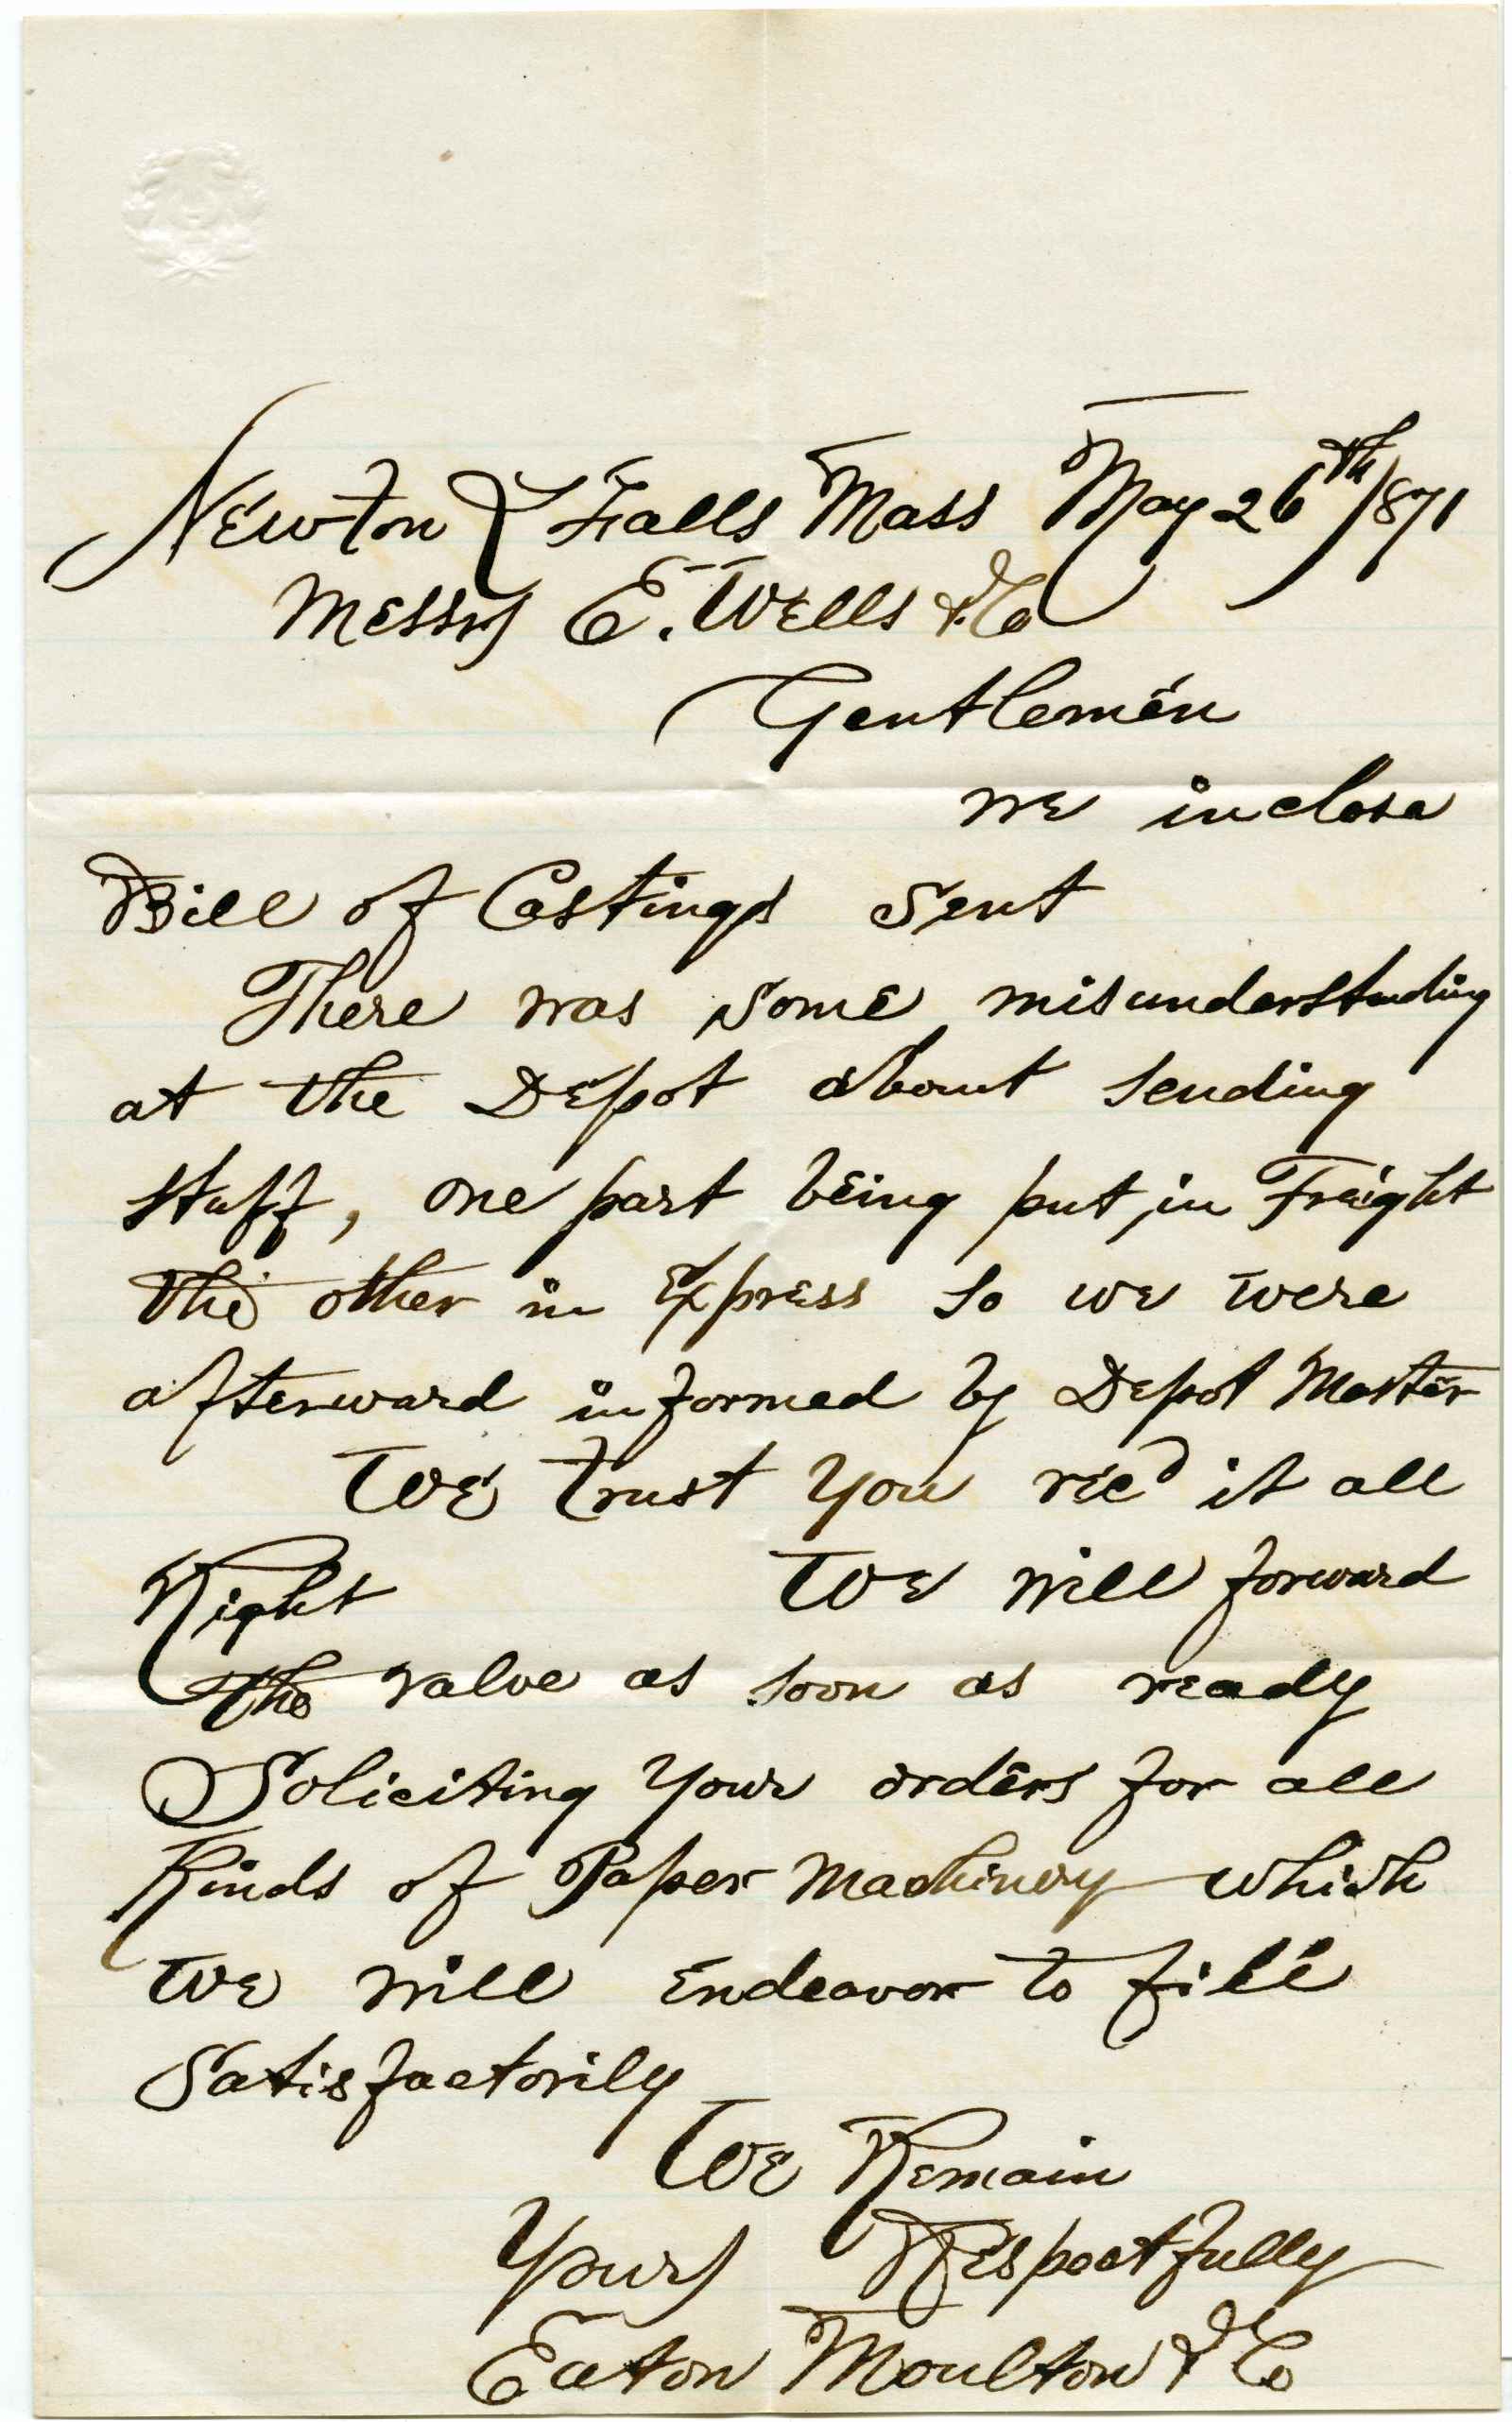 Newton L Falls Mass May 26th/871
Messrs E. Wells & Co
Gentlemen
we inclose
Bill of Castings Sent
There was some misunderstanding
at the Depot about sending
stuff, one part being put in Freight
the other in Express so we were
afterward informed by Depot Master
We trust you recd it all
Right We will forward
the valve as soon as ready
Soliciting Your orders for all
Kinds of Paper Machinery which
We will Endeavor to fill
Satisfactorily
We Remain
Yours Respectfully
Eaton Moulton & Co